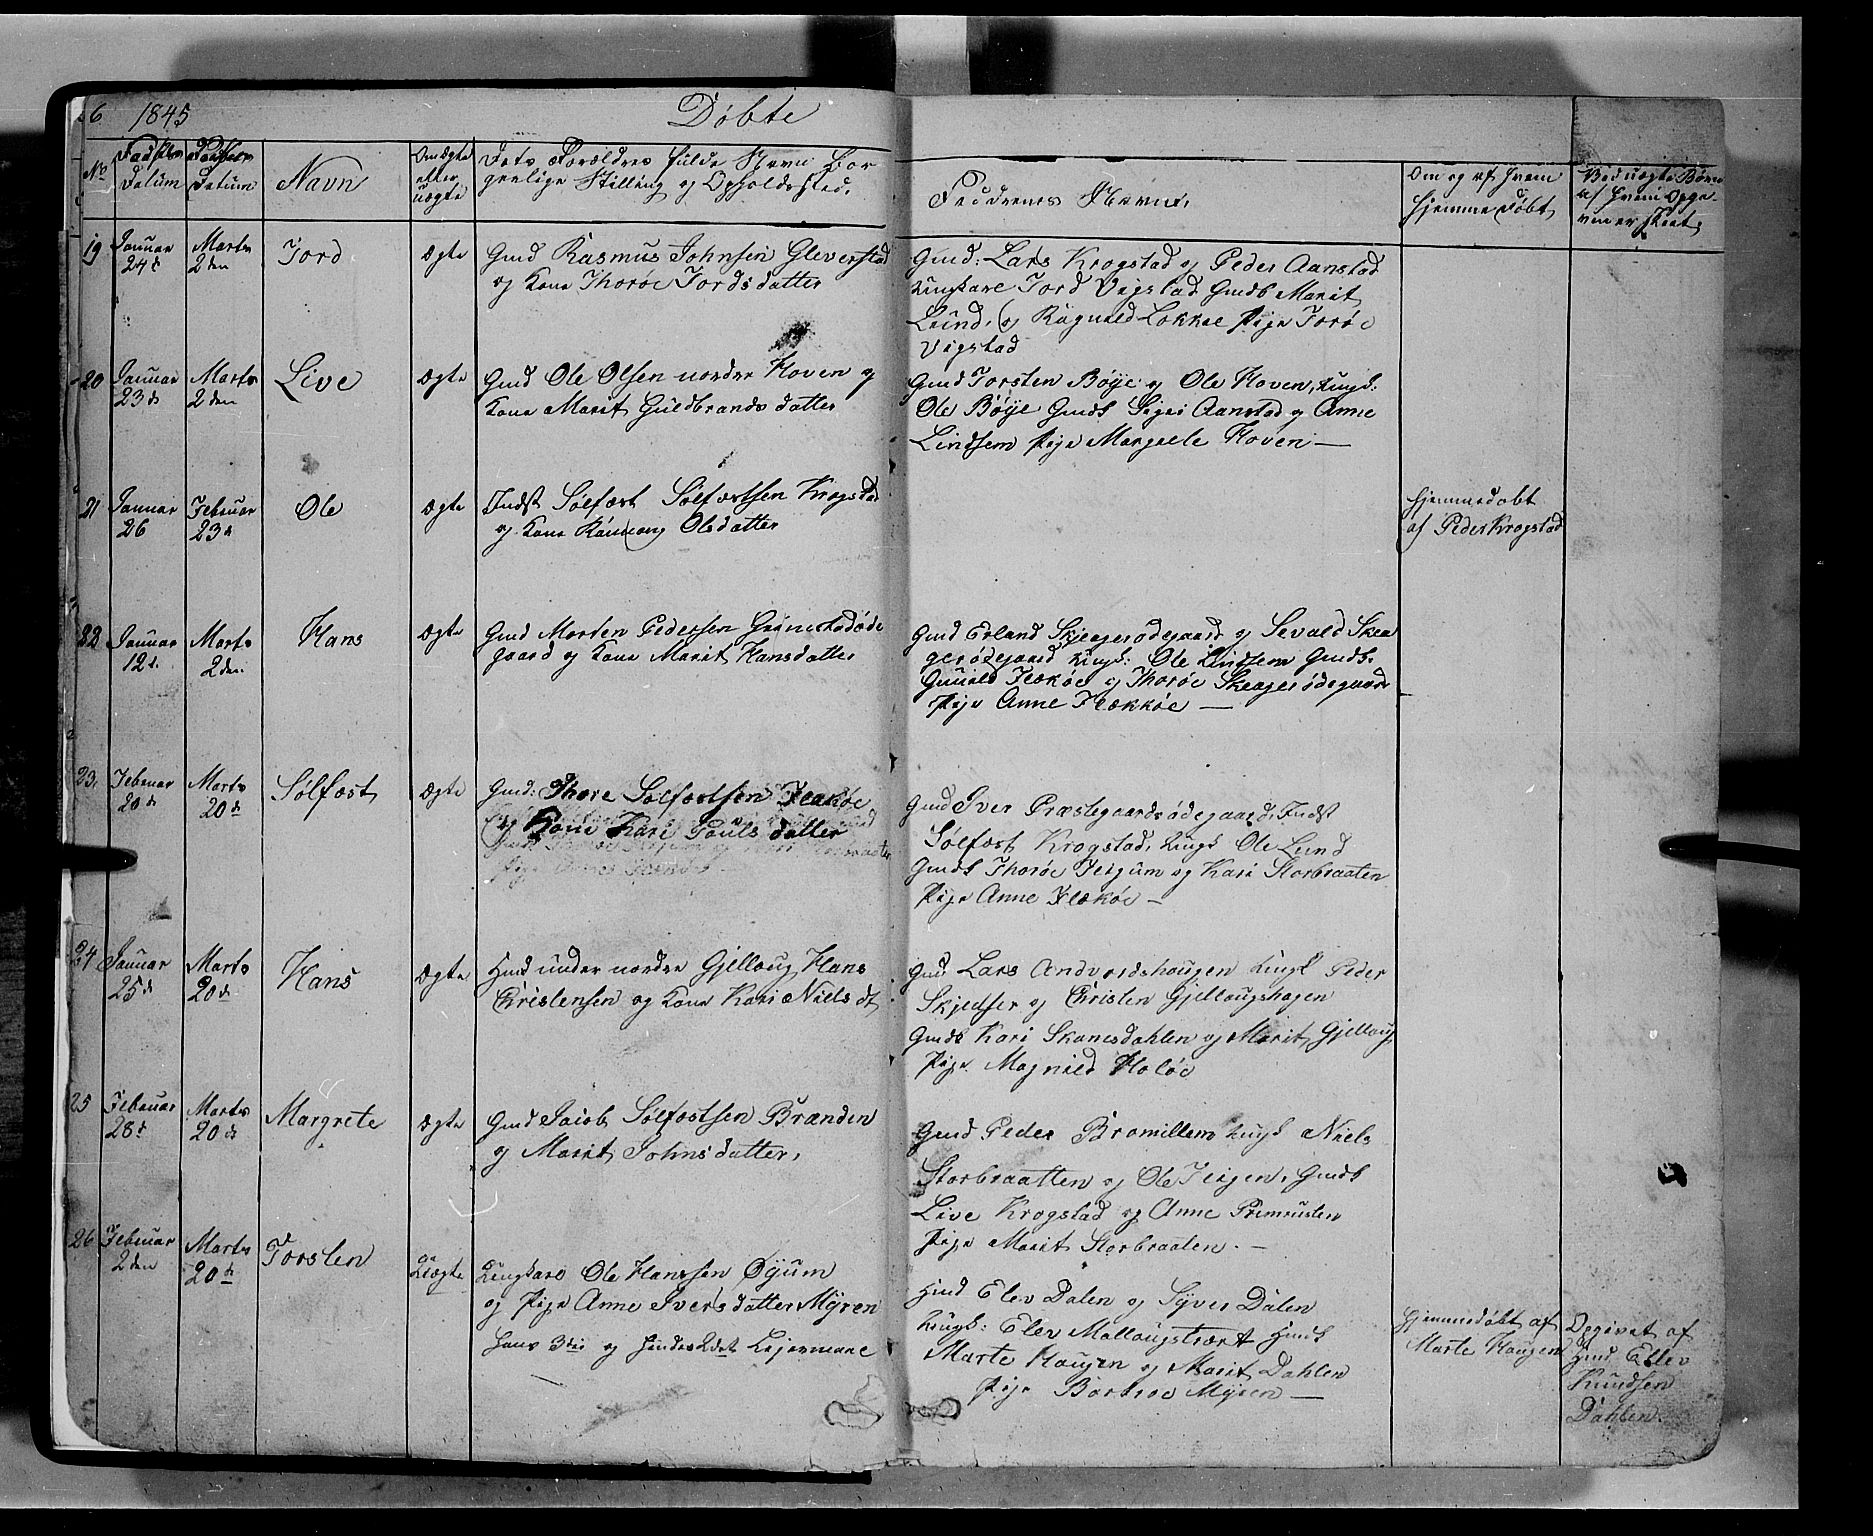 6 1845 Døbte
No Fødsels Datum Døbsels Datum Navn Om ægte eller uægte Dets Forældres fulde Navn Bor
gerlige Stilling og Opholdssted.
Faddernes Navne.
Om og af hvem
hjemme Døbt
Ved uægte Børn
af hvem Opgi
ven er skeet
19 Januar 24d Marts 2den Tord Ægte Gmd Rasmus Johnsen Gleverstad
og Kone Thoröe Tords datter
Gmd: Lars Krogstad og Peder Aanstad
Ungkarl Tord Vigstad Gmds Marit
Lund, og Ragnild Løkkel Pige Toröe
Vigstad
20 Januar 23d Marts 2den Live Ægte Gmd Ole Olsen nordre Hoven og
Kone Marit Guldbrands datter
Gmd Torsten Böye og Ole Hoven, Ungk:
Ole Böye Gmds Sigri Aanstad og Anne
Lindsem Pige Margrete Hoven —
21 Januar 26 Februar 23d Ole Ægte Indst Sølfæst Sølfæstsen Krogstad
og Kone Rönnoug Olsdatter
hjemmedøbt
af Peder Krogstad
22 Januar 12t Marts 2den Hans Ægte Gmd Morten Pedersen Grimstadøde
gaard og Kone Marit Hansdatter
Gmd Erland Skjeagerødegaard og Sevald Skea
gerødegaard Ungk: Ole Lindsem Gmds.
Gunild Flækøe og Thoröe Skeagerødegaard
Pige Anne Flækköe —
23 Februar 20d Marts 20d Sølfæst Ægte Gmd: Thore Sølfæstsen Flækøe
og Kone Kari Pouls datter
Gmd Iver Præstegaardsødegaard, Indst
Sølfæst Krogstad, Ungk Ole Lund
Gmds Thoröe Teigum og Kari Storbraaten
Pige Anne Flækøe —
24 Januar 25d Marts 20d Hans Ægte Hmd under nordre Gjelloug Hans
Christensen og Kone Kari Niels dt
Gmd Lars Andvordshougen Ungk Peder
Skjedser og Christen Gjellougshagen
Gmds Kari Skamsdahlen og Marit Gjelloug
Pige Magnild Holöe
25 Februar 28d Marts 20d Margrete Ægte Gmd Jacob Sølfæstsen Brænden
og Marit Johns datter,
Gmd Peder Bromillem Ungk Niels
Storbraatten og Ole Teigen, Gmds
Live Krogstad og Anne
Pige Marit Storbraaten. —
26 Februar 2den Marts 20d Torsten Uægte Ungkarl Ole Hanssen Öyum
og Pige Anne Ivers datter Myren
hans 3die og hendes 2det Leiermaal
Hmd Elev Dalen og Syver Dalen
Ungk: Elev Mollougstræt Hmds
Marte Hougen og Marit Dahlen
Pige Barbroe Myren —
hjemmedøbt af
Marte Hougen
Opgivet af
Hmd Ellev
Knudsen
Dahlen.